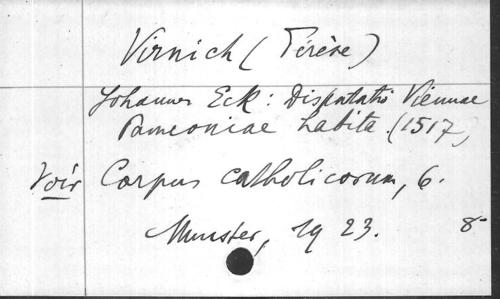 Virnich (Térèse)
Johannes Eck : Disputatio Viennae
Pannoniae habita (1517)
Voir Corpus catholicorum, 6.
Munster, 1923. 8°